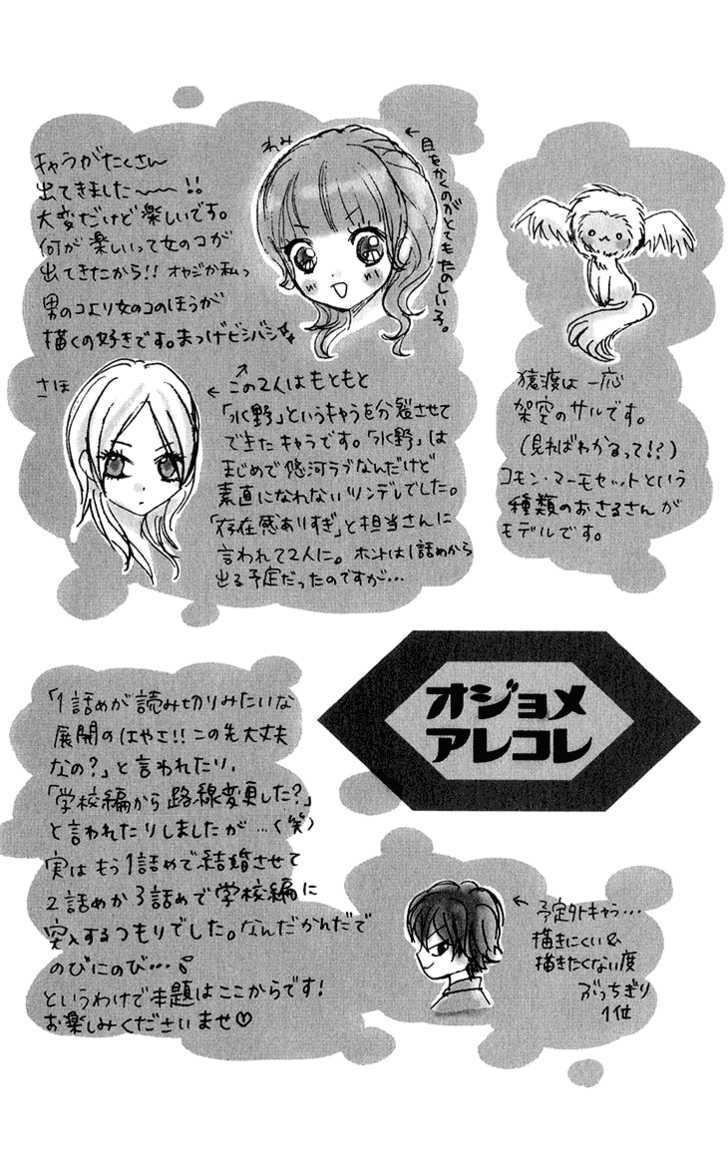 キャラがたくさん
出てきました〜〜!!
大変だけど楽しいです。
何が楽しいって女のコが
出てきたから!! オヤジか私っ
男のコより女のコのほうが
描くの好きです。まつげビシバシ
れみ
←目をかくのがとてもたのしい子。
さほ
←↗この2人はもともと
「水野」というキャラを分裂させて
できたキャラです。「水野」は
まじめで悠河ラブなんだけど
素直になれないツンデレでした。
「存在感ありすぎ」と担当さんに
言われて2人に。ホントは1話めから
出る予定だったのですが…
猿渡は一応
架空のサルです。
(見ればわかるって!?)
コモン・マーモセットという
種類のおさるさんが
モデルです。
オジョメ
アレコレ
「1話めが読み切りみたいな
展開のはやさ!!この先大丈夫
なの?」と言われたり、
「学校編から路線変更した?」
と言われたりしましたが…(笑)
実はもう1話めで結婚させて
2話めか3話めで学校編に
突入するつもりでした。なんだかんだで
のびにのび…
というわけで本題はここからです!
お楽しみくださいませ♡
←予定外キャラ…
描きにくい&
描きたくない度
ぶっちぎり
1位